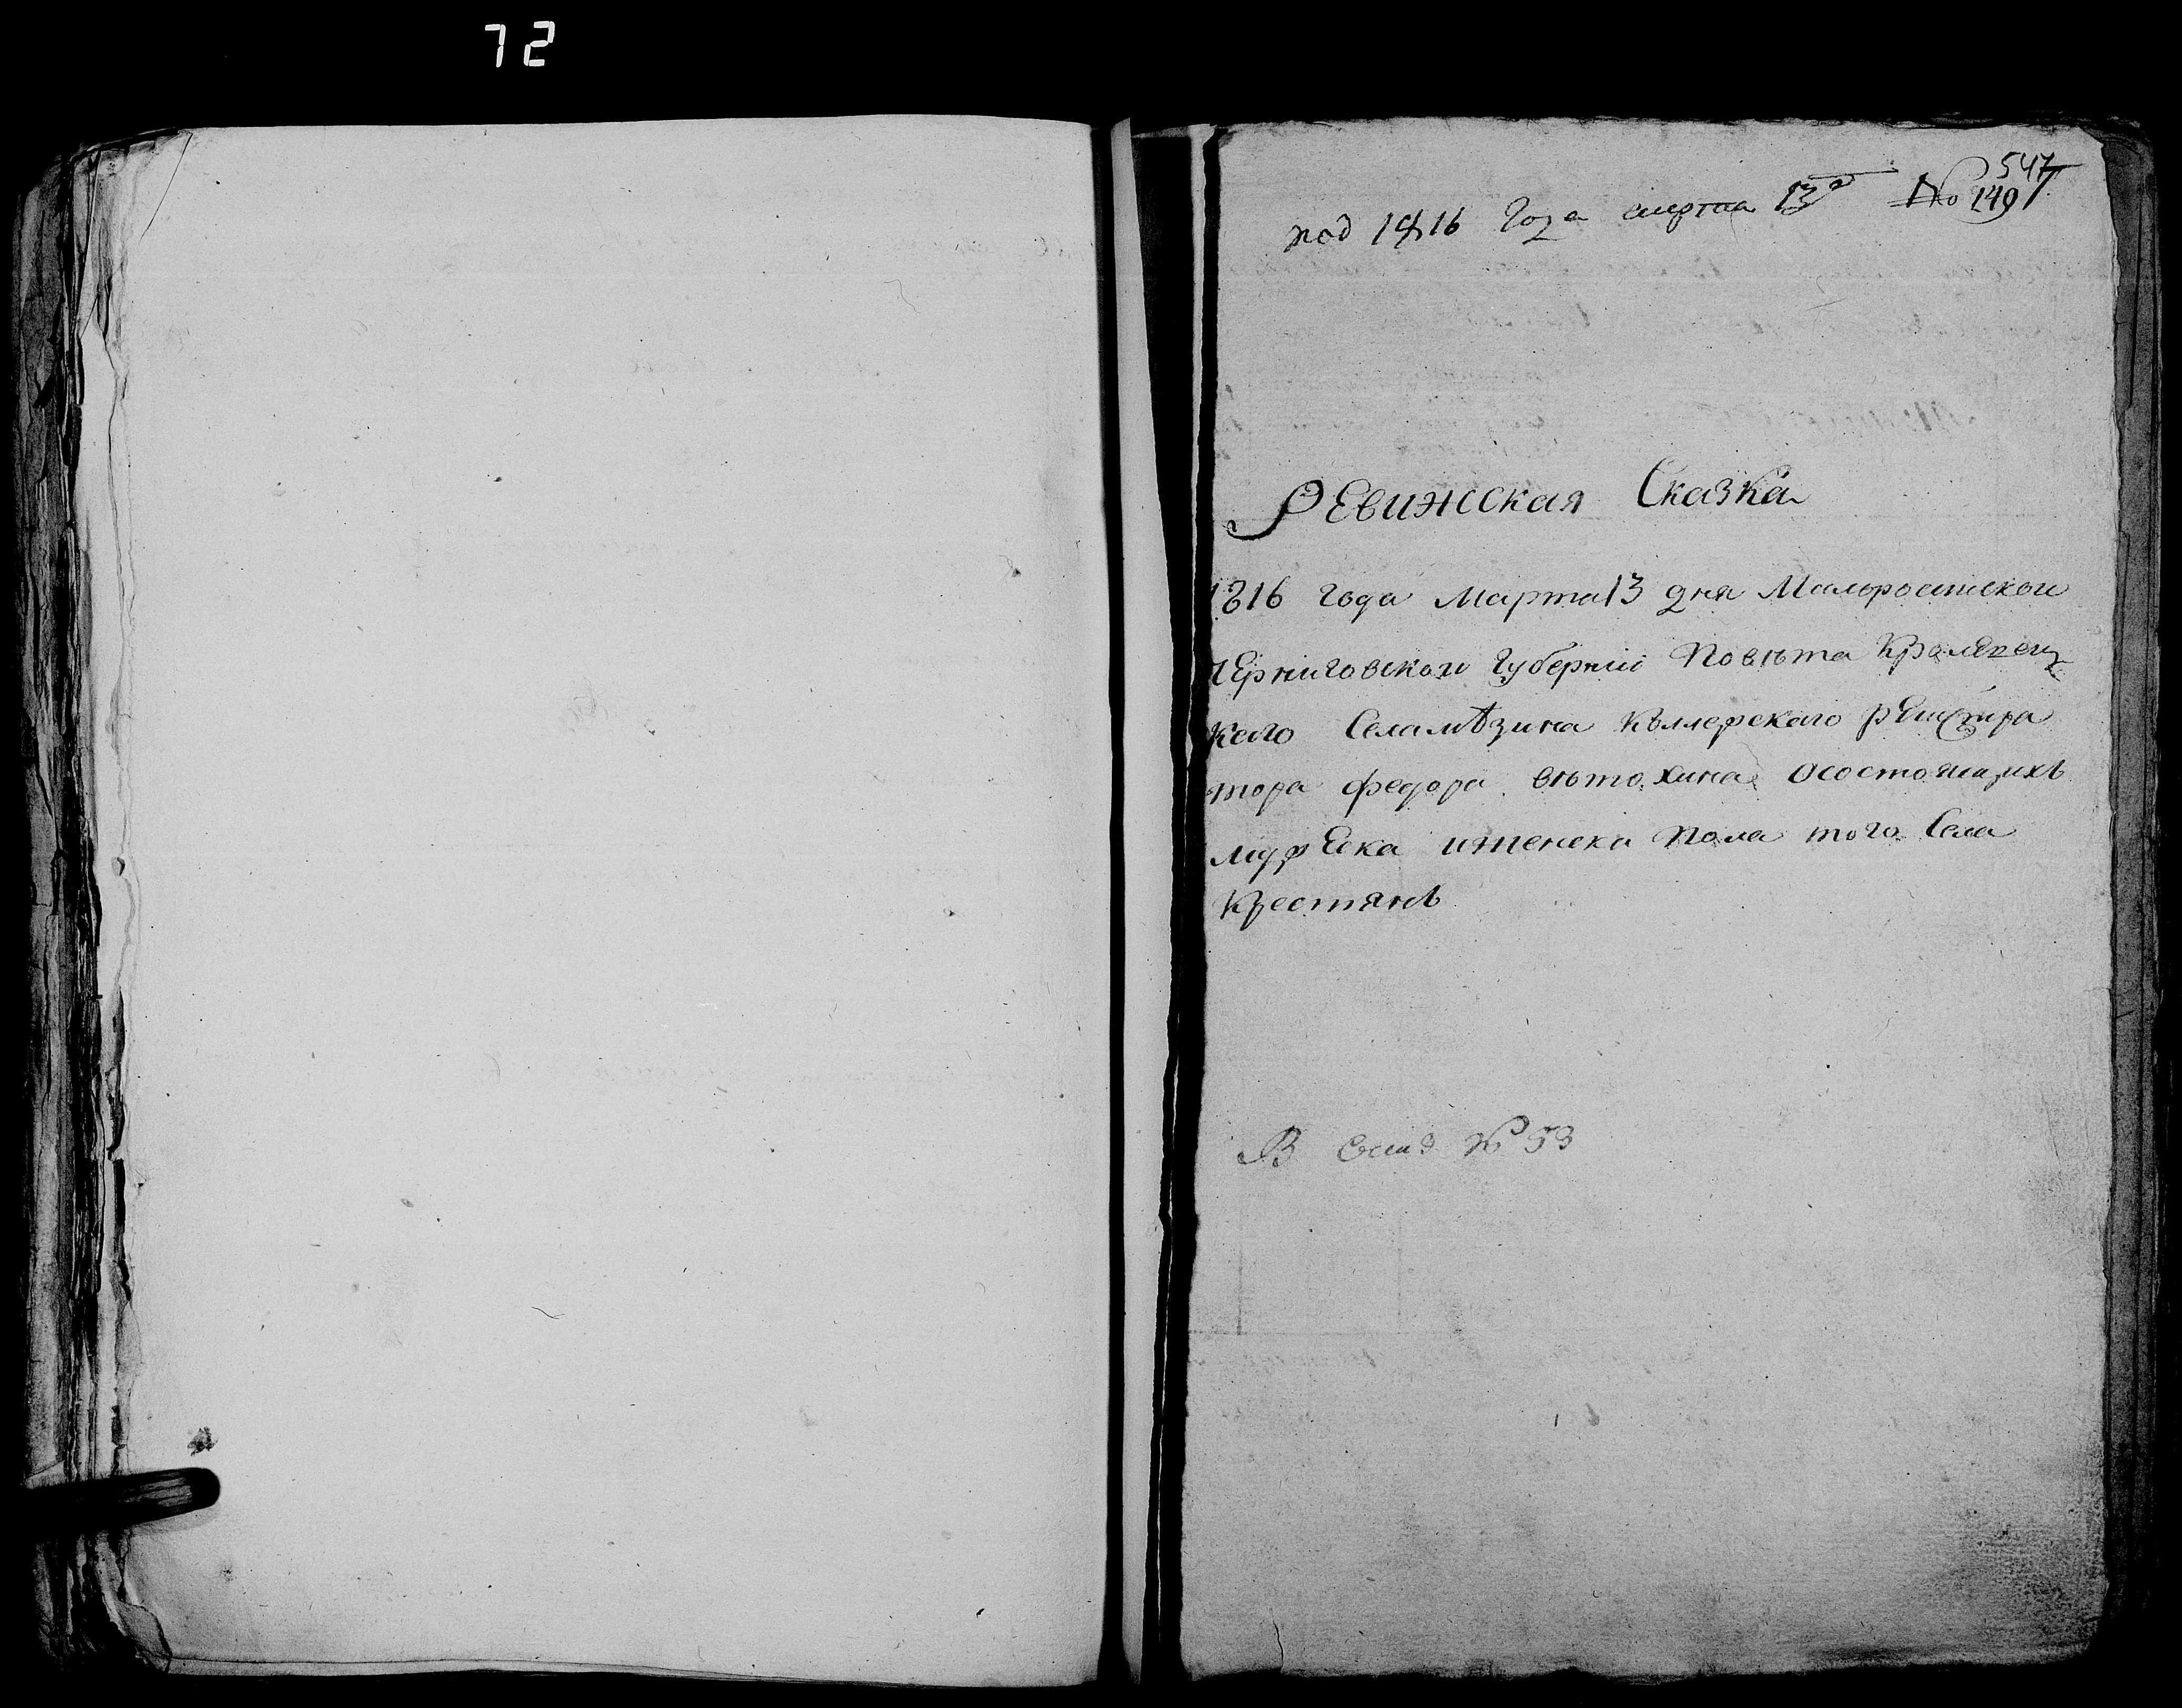 72
547
под 1816 Года марта 13го No 149
Ревижская Сказка
1816 года Марта 13 дня Малоросииской
Черниговской Губернии Повѣта Кролевец
кого Села Мѣзина Коллежского регистра
тора федора вѣтохина осостоящихъ
мужеска иженска пола того Села
Крестянъ
В № 53